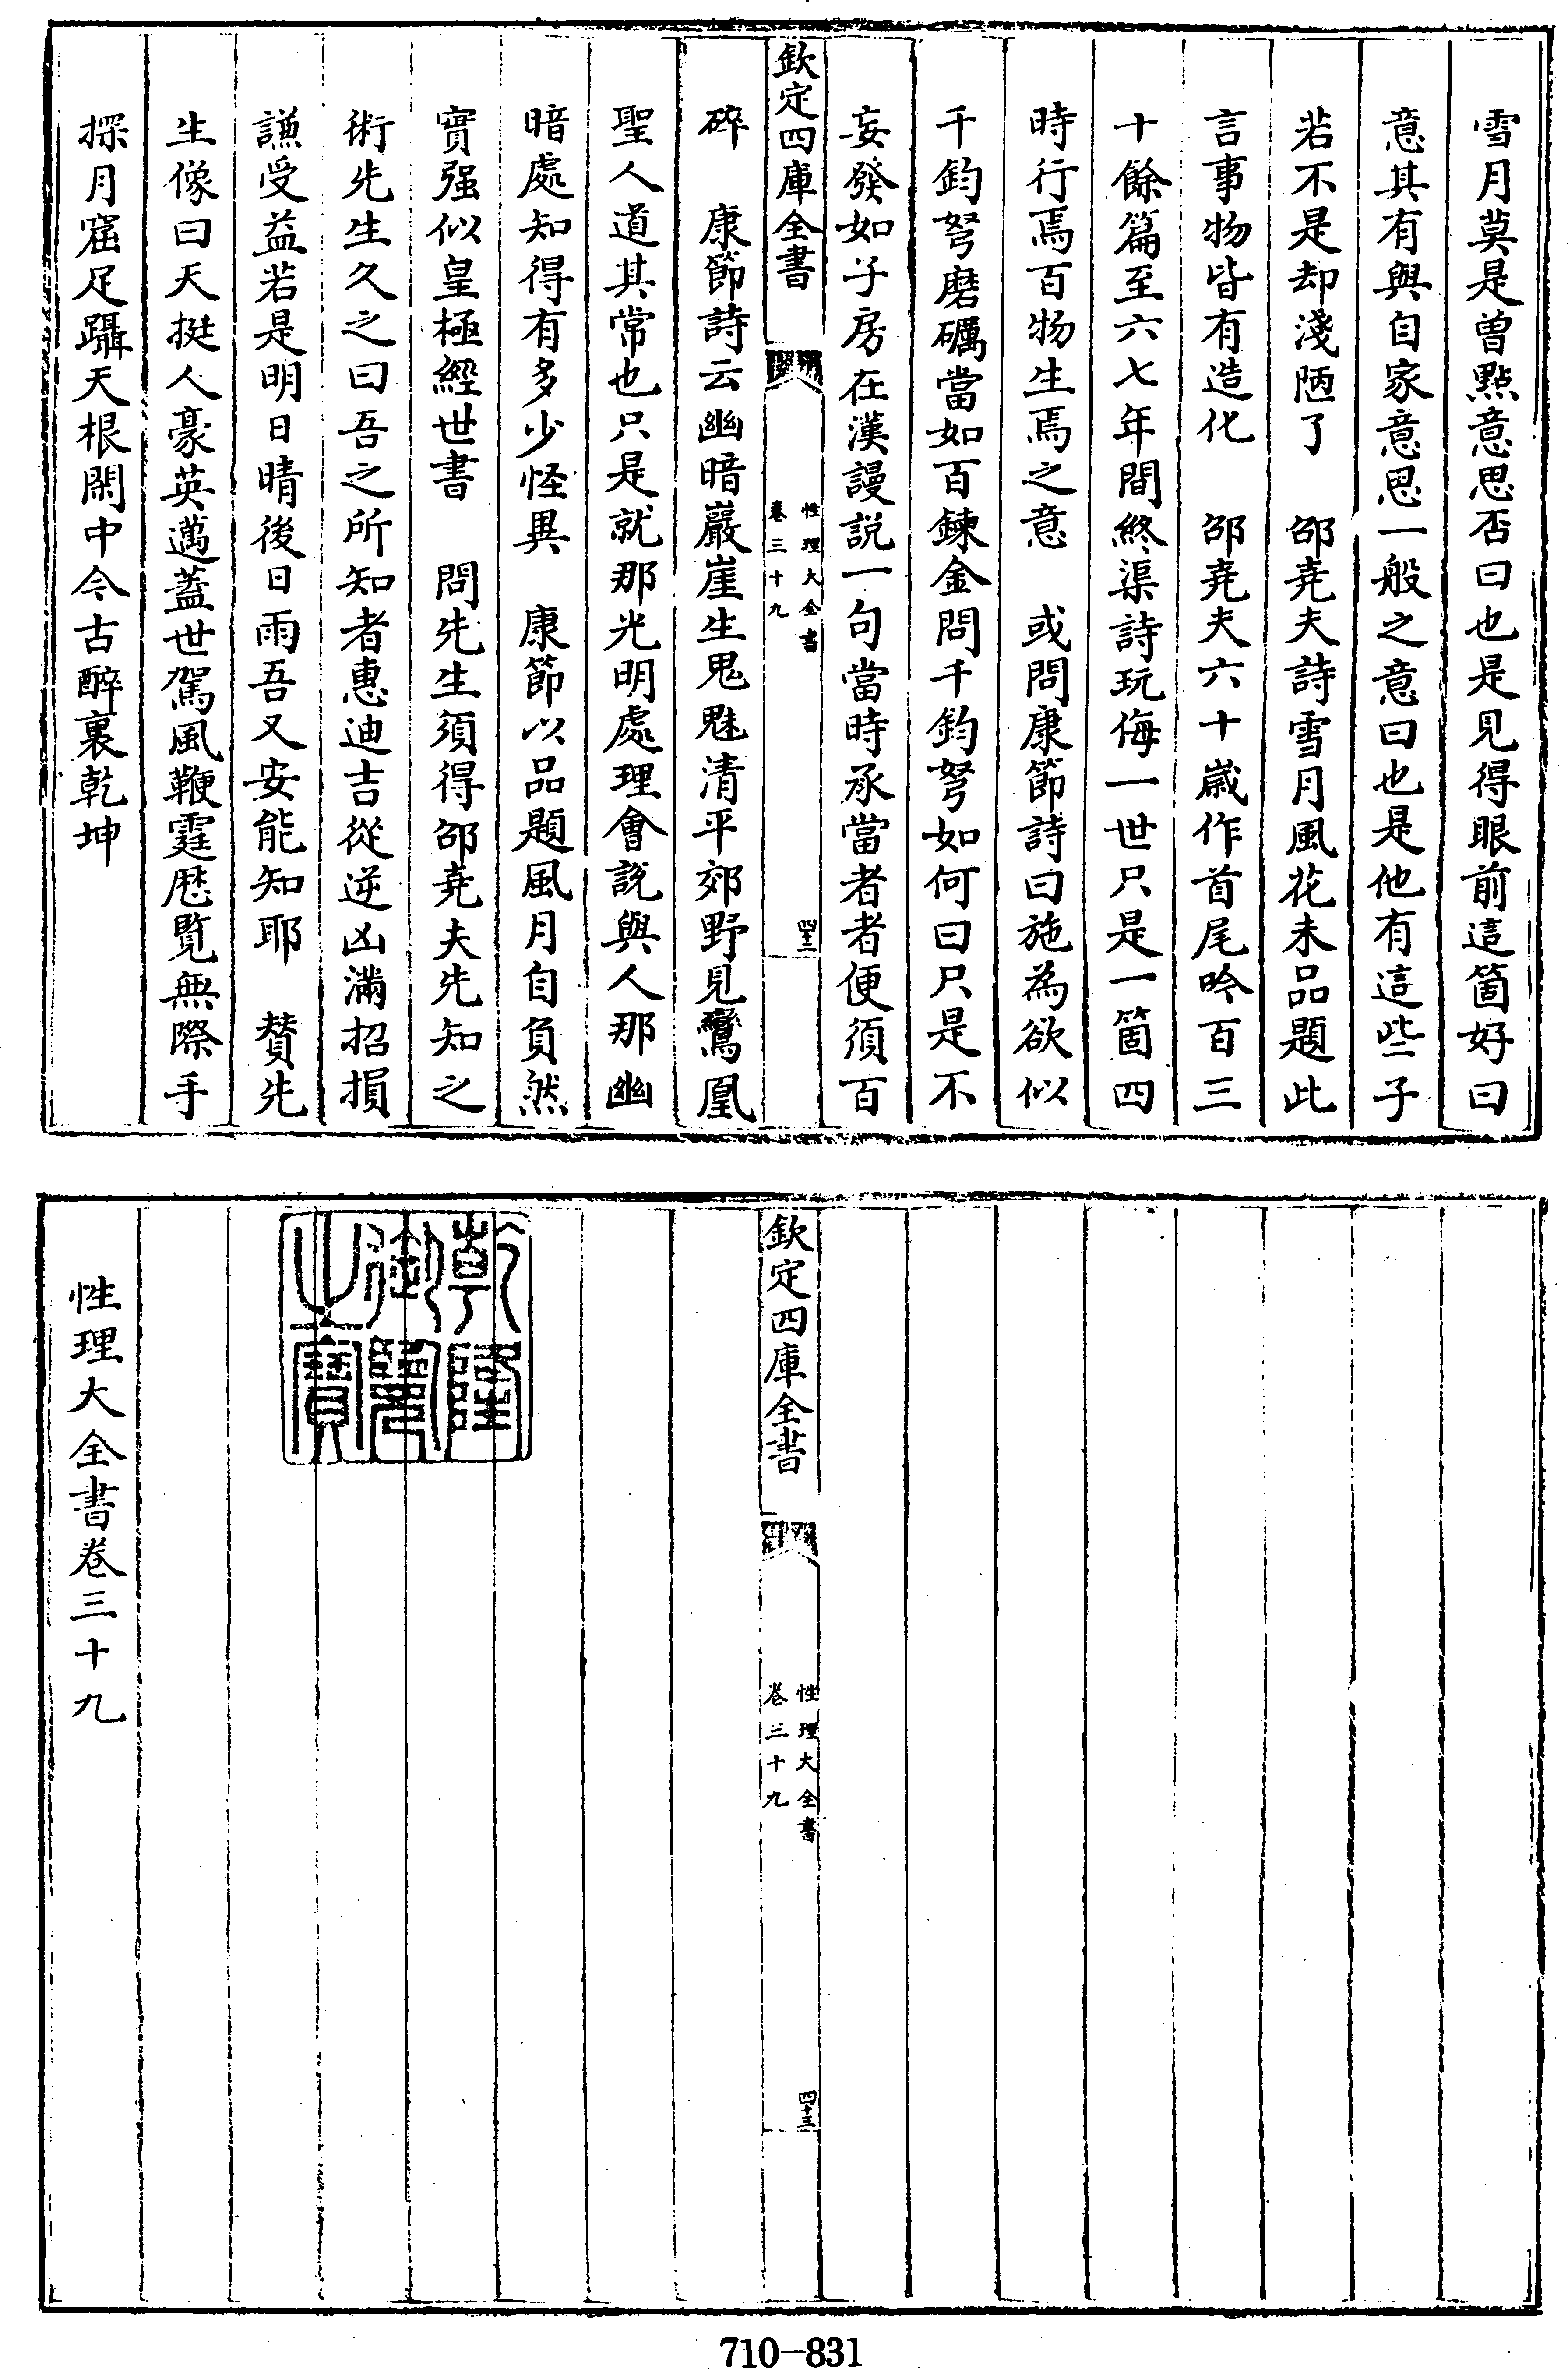 雪月莫是曾點意思否曰也是見得眼前這箇好曰
意其有與自家意思一般之意曰也是他有這些子
若不是却淺陋了　邵堯夫詩雪月風花未品題此
言事物皆有造化　邵堯夫六十歲作首尾吟百三
十餘篇至六七年間終渠詩玩侮一世只是一箇四
時行焉百物生焉之意　或問康節詩曰施為欲似
千鈞弩磨礪當如百鍊金問千鈞弩如何曰只是不
妄發如子房在漢謾説一句當時承當者者便須百
欽定四庫全書
性理大全書
卷三十九
四十二
碎　康節詩云幽暗巖崖生鬼魅清平郊野見鸞凰
聖人道其常也只是就那光明處理會説與人那幽
暗處知得有多少怪異　康節以品題風月自負然
實强似皇極經世書　問先生須得邵堯夫先知之
術先生久之曰吾之所知者惠迪吉從逆凶滿招損
謙受益若是明日晴後日雨吾又安能知耶　贊先
生像曰天挺人豪英邁蓋世駕風鞭霆歴覽無際手
探月窟足躡天根閑中今古醉裏乾坤
欽定四庫全書
性理大全書
卷三十九
四十三
乾隆御覽之寶
性理大全書卷三十九
710-831